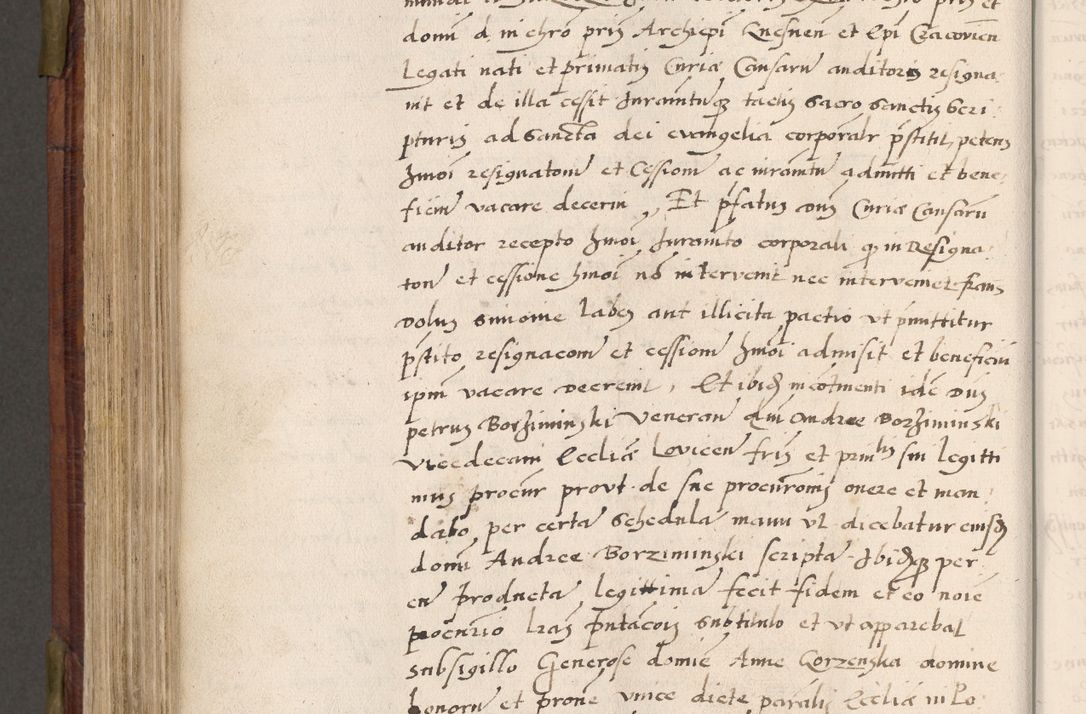 domi d in chro pris Archiepi Gnesnen et Epi Cracovien
Legati nati et primatis Curiæ Causaru auditoris resigna
vit et de illa cessit Juramtuq tactis sacro sanctis Scri
pturis ad Sancta dei evangelia corporalr pstitit, petens
hmoi resignatoni et Cessioni ac iuramtu admitti et bene
ficiu vacare decerni, Et pfatus dns Curiæ Causaru
auditor recepto hmoi Juramto corporali q in Resigna
ton et cessione hmoi no intervenit nec interveniet fraus
dolus simonie labes aut illicita pactio ut pmittitur
pstito resignaconi et cessioni hmoi admisit et beneficiu
ipm vacare decrevit, Et ibid incotinenti ide dns
petrus Borzimin ski Veneran dni Andree Borzimin ski
vicedecani Eccliæ Lovicen fris et prin lis sui legitti
mus procur prout de sue procuronis onere et man
dato, per certa Schedula manu ut dicebatur eiusd
domi Andree Borziminski scripta Ibidq per
en producta legittima fecit fidem et eo noie
procurio lras pntacois subtitulo et ut apparebat
sub sigillo Generose domie Anne Gorzenska domine
bonoru et prone vnice dicte paralis Eccliæ in Lo